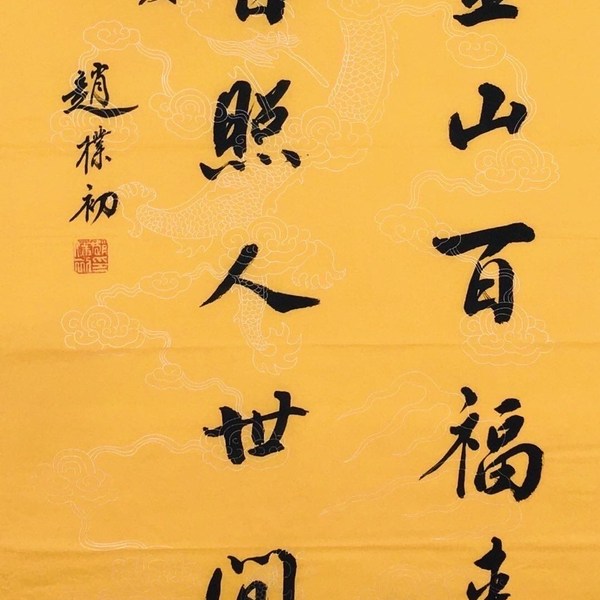 山百福
照人世間
趙樸初